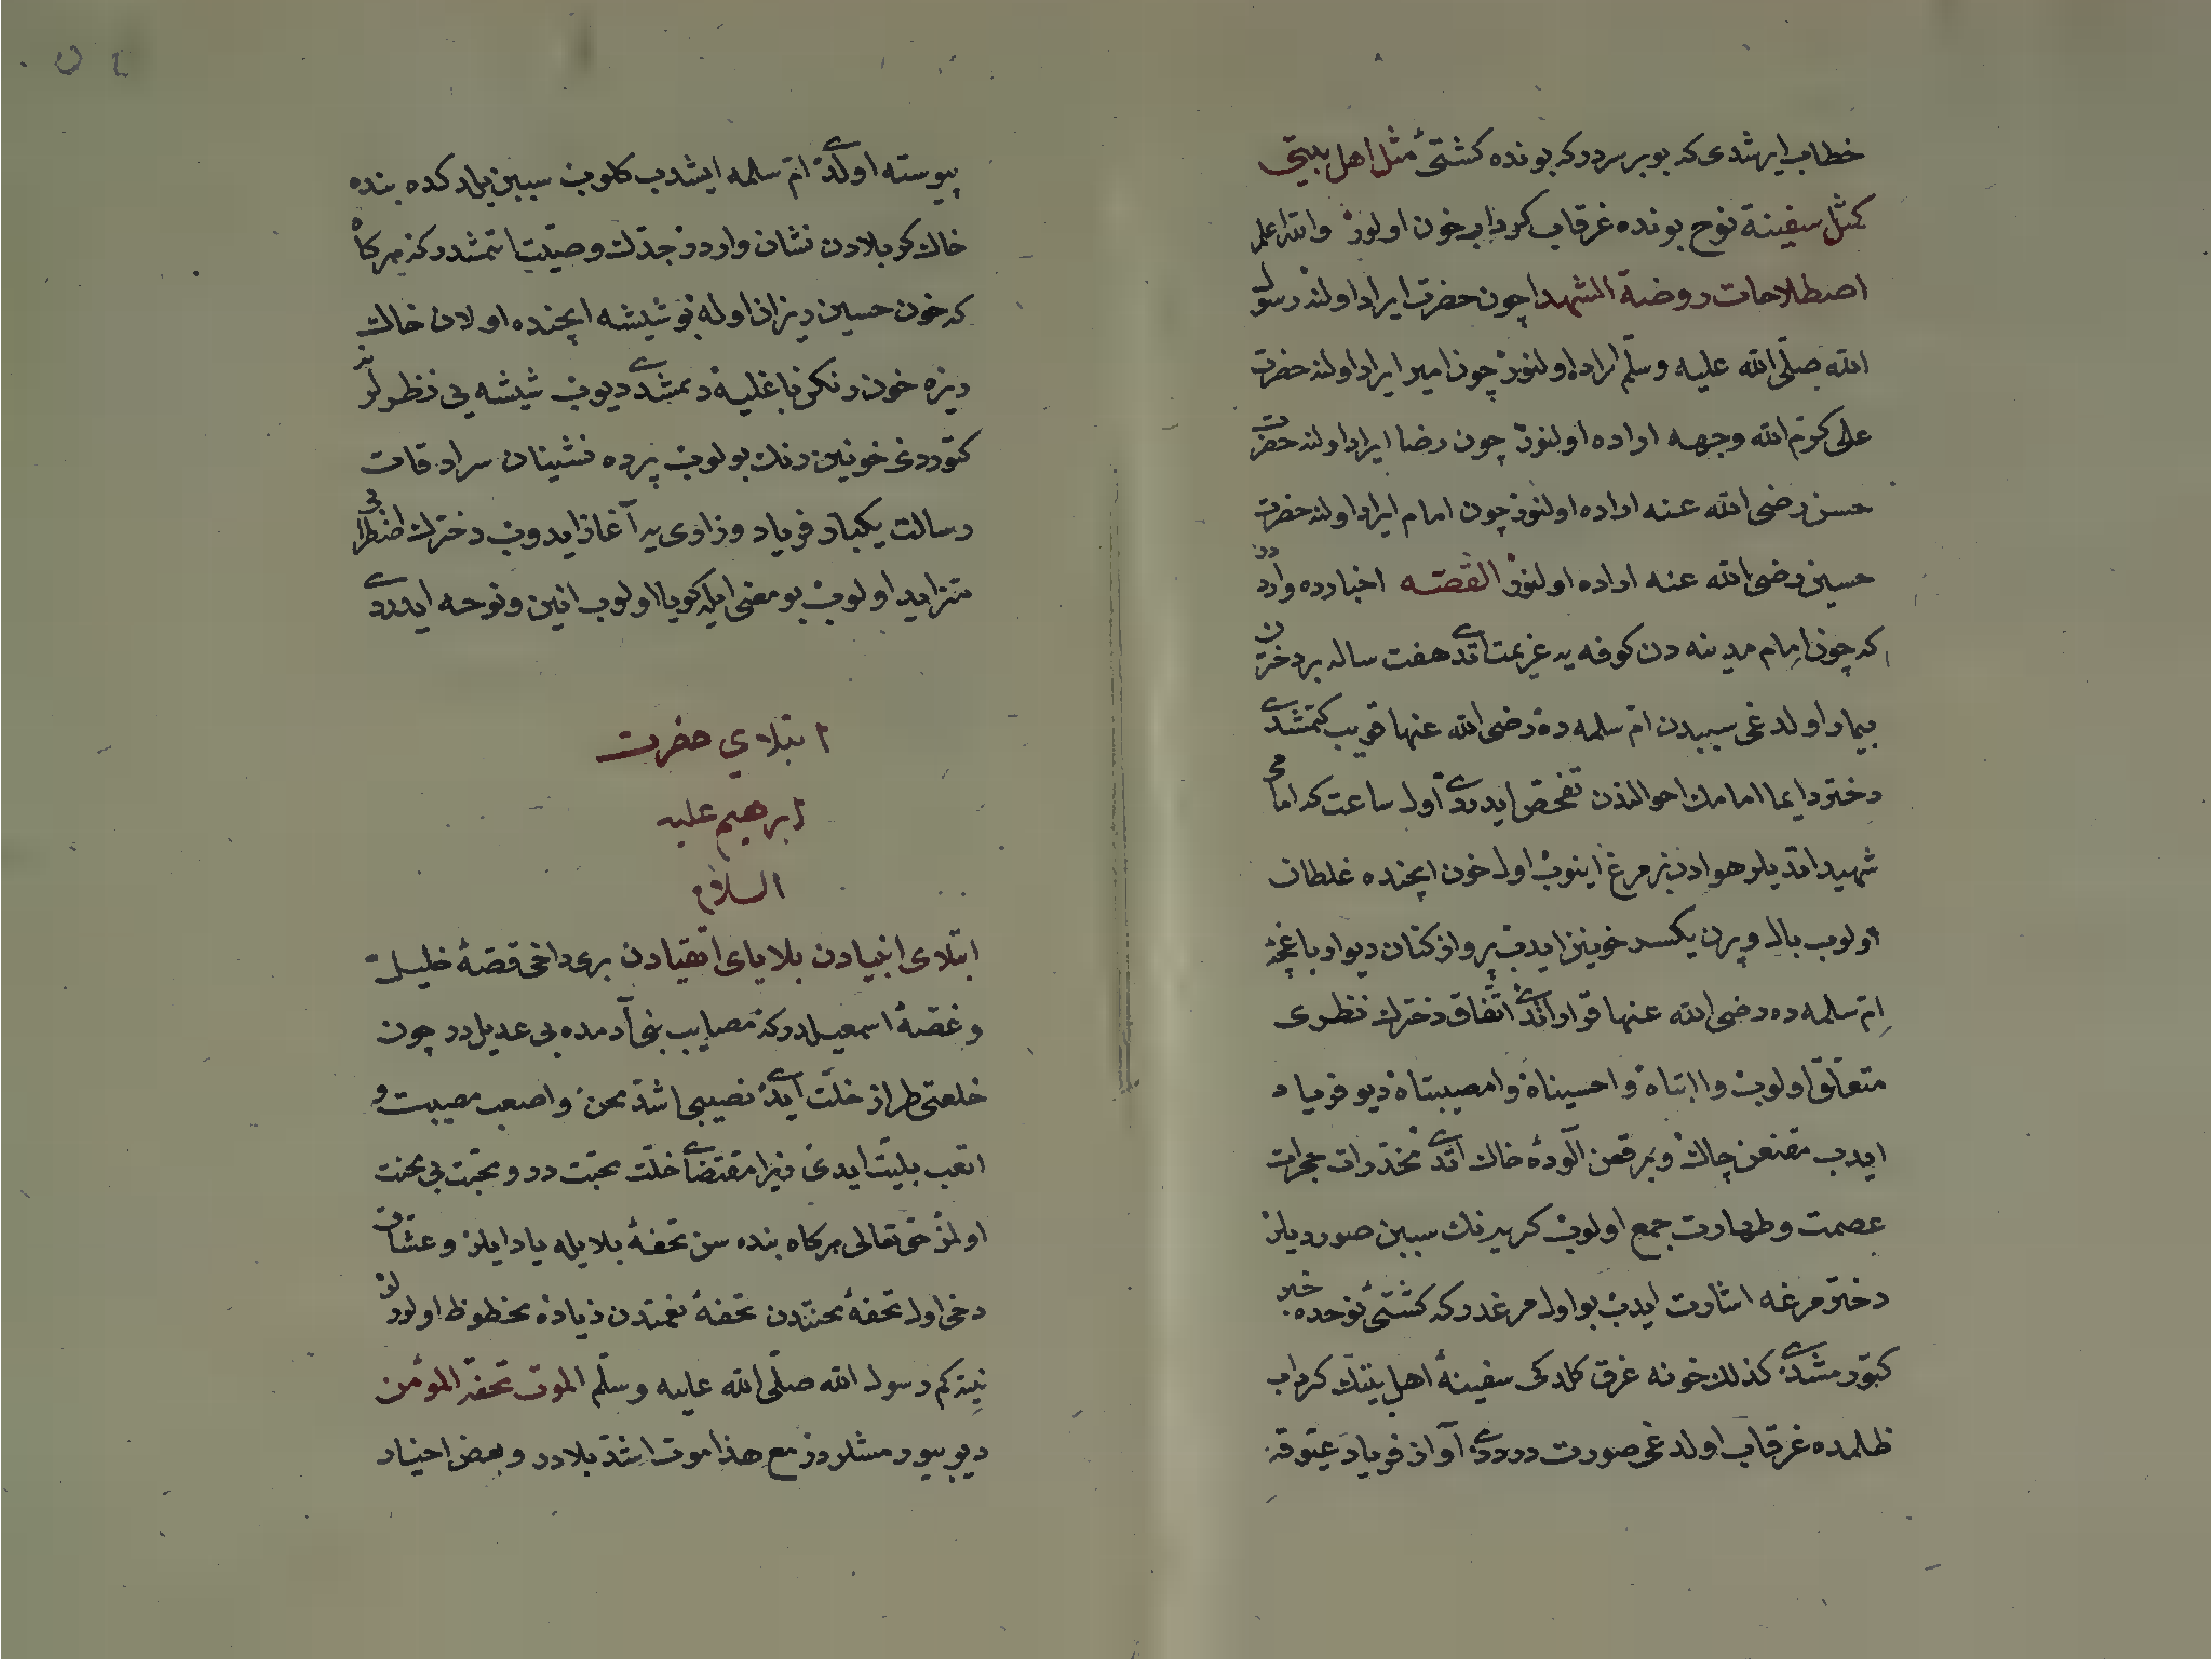 خطاب ايرشدى كه بو بر سردركه بونده كشتئ مثل اهل بيتى
كمثل سفينة نوح بونده غرقاب كرداب خون اولور والله اعلم
اصطلاحات روضة الشهدا چون حضرت ايراد اولنه رسول
الله صلّى الله عليه وسلّم اراده اولنور چون امير ايراد اولنه حضرت
على كرّم الله وجهه اراده اولنور چون رضا ايراد اولنه حضرت
حسن رضى الله عنه اراده اولنور چون امام ايراد اولنه حضرت
حسين رضى الله عنه اراده اولنور القصّه اخبارده وارددر
كه چون امام مدينه دن كوفه يه عزيمت اتدى هفت ساله بر دخترن
بيمار اولدغى سببدن امّ سلمه ده رضى الله عنها قريب كتمشدى
دختر دايما امامك احوالندن تفحّص ايدردى اول ساعت كه امامى
شهيد اتديلر هوادن بر مرغ اينوب اول خون ايچنده غلطان
اولوب بال و پرن يكسر خونين ايدب پرواز كنان ديوار باغچهٔ
امّ سلمه ده رضى الله عنها قرار اتدى اتّفاق دخترك نظرى
متعلّق اولوب وا ابتاه وا حسيناه وا مصيبتاه ديو فرياد
ايدب مقنعن چاك و برقعن آلودهٔ خاك اتدى مخدّرات حجرات
عصمت و طهارت جمع اولوب كريه نك سببين صورديلر
دختر مرغه اشارت ايدب بو اول مرغدركه كشتئ نوحده خبر
كتورمشدى كذلك خونه غرق كلدكى سفينهٔ اهل بيتك كرداب
ظلمده غرقاب اولدغى صورت دردى آواز فرياد عيّوقه
پيوسته اولدى امّ سلمه ايشدب كلوب سببن بلدكده بنده
خاك كربلادن نشان واردر جدّك وصيّت اتمشدركه هركاه
كه خون حسين ريزان اوله بو شيشه ايچنده اولان خاك
ريزه خون رنكن باغليه دمشدى ديوب شيشه يى نظرلرينه
كتوردغى خونين رنك بولوب پرده نشينان سرادقات
رسالت يكبار فرياد و زارى يه آغاز ايدوب دخترك اضطرابى
متزايد اولوب بو معنى ايله كويا اولوب انين و نوحه ايدردى
ابتلاي حضرت
ابرهيم عليه
السلام
ابتلاى انبيادن بلاياى اتقيادن برى داخى قصّهٔ خليل
و غصّهٔ اسمعيلدركه مصايب بنى آدمده بى عديلدر چون
خلعتى طراز خلّت ايدى نصيبى اشدّ محن و اصعب مصيبت و
اتعب بليّت ايدى زيرا مقتضاى خلّت محبّت در و محبّت بى محنت
اولمز حق تعالى هركاه بنده سن تحفهٔ بلايله ياد ايلر و عشّاق
دخى اول تحفهٔ محنتدن تحفهٔ نعمتدن زياده محظوظ اولورلر
نيتكم رسول الله صلّى الله عليه وسلّم الموت تحفة المؤمن
ديو بيورمشلردر مع هذا موت اشدّ بلادر و بعض اخيار